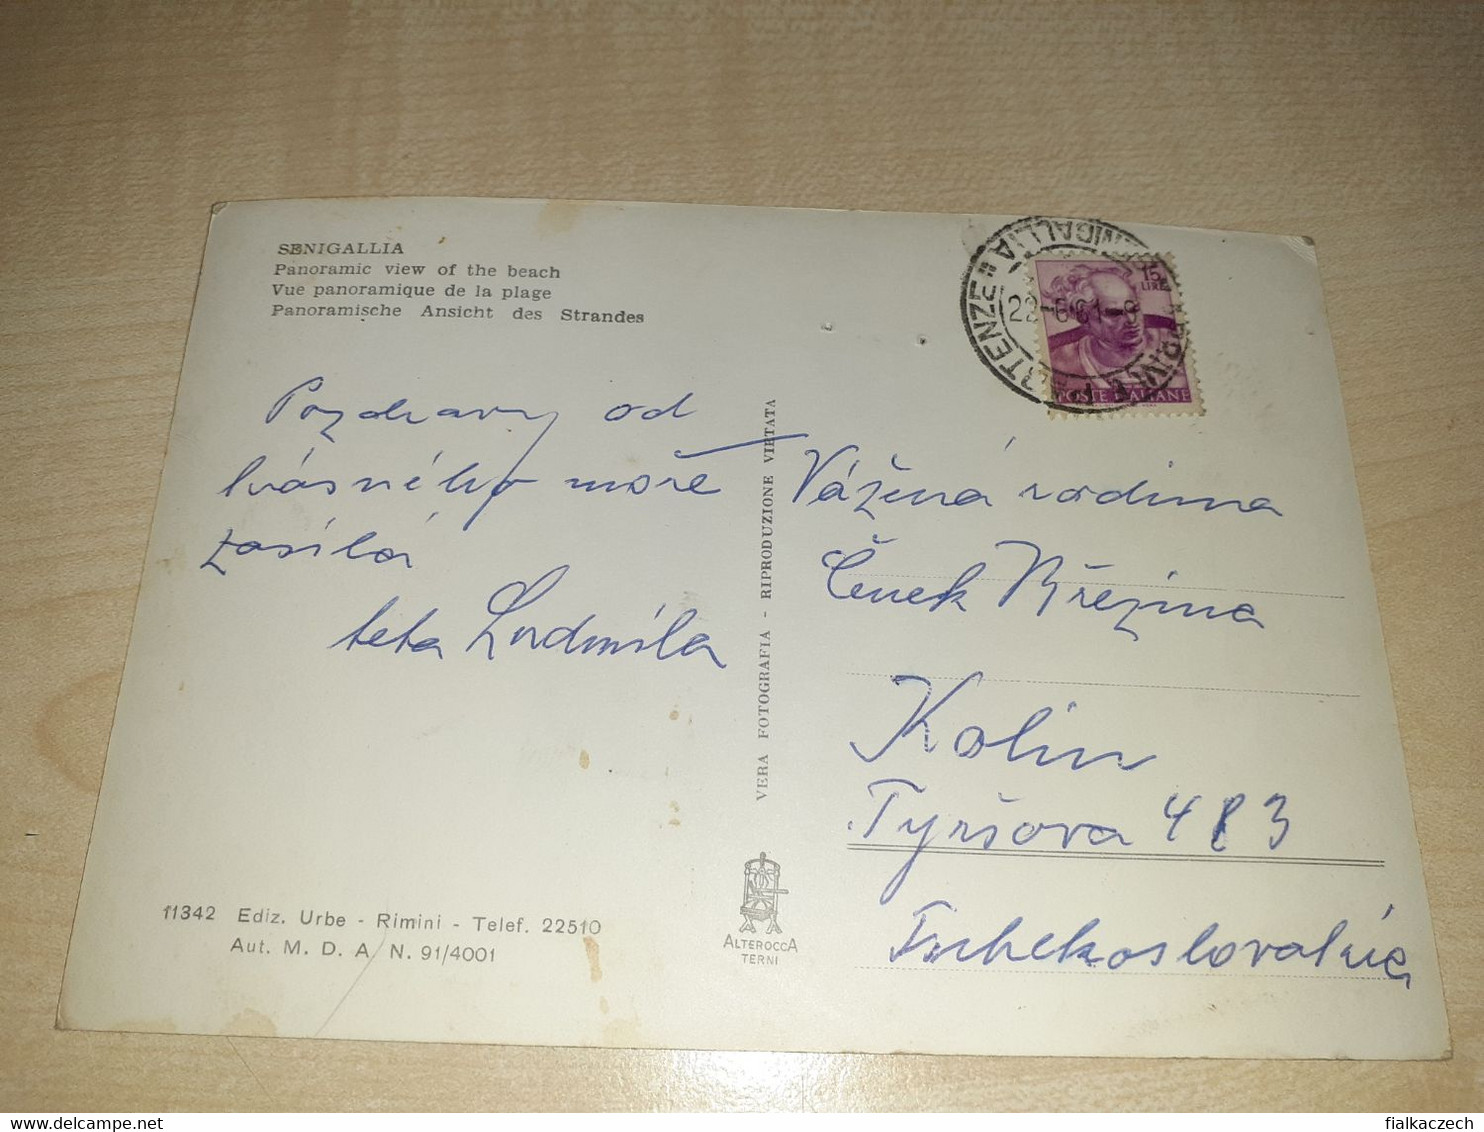 SENIGALLIA
Panoramic view of the beach
Vue panoramique de la plage
Panoramische Ansicht des Strandes
Pozdravy od
krásného moře
zasílá
teta Ludmila
11342 Ediz. Urbe - Rimini - Telef. 22510
Aut. M. D. A. N. 91/4001
VERA FOTOGRAFIA - RIPRODUZIONE VIETATA
ALTEROCCA
TERNI
SENIGALLIA
22-6 61-
15
LIRE
POSTE ITALIANE
Vážená rodina
Čeněk Březina
Kolín
Tyršova 483
Tschekoslovakia
delcampe.net
fialkaczech